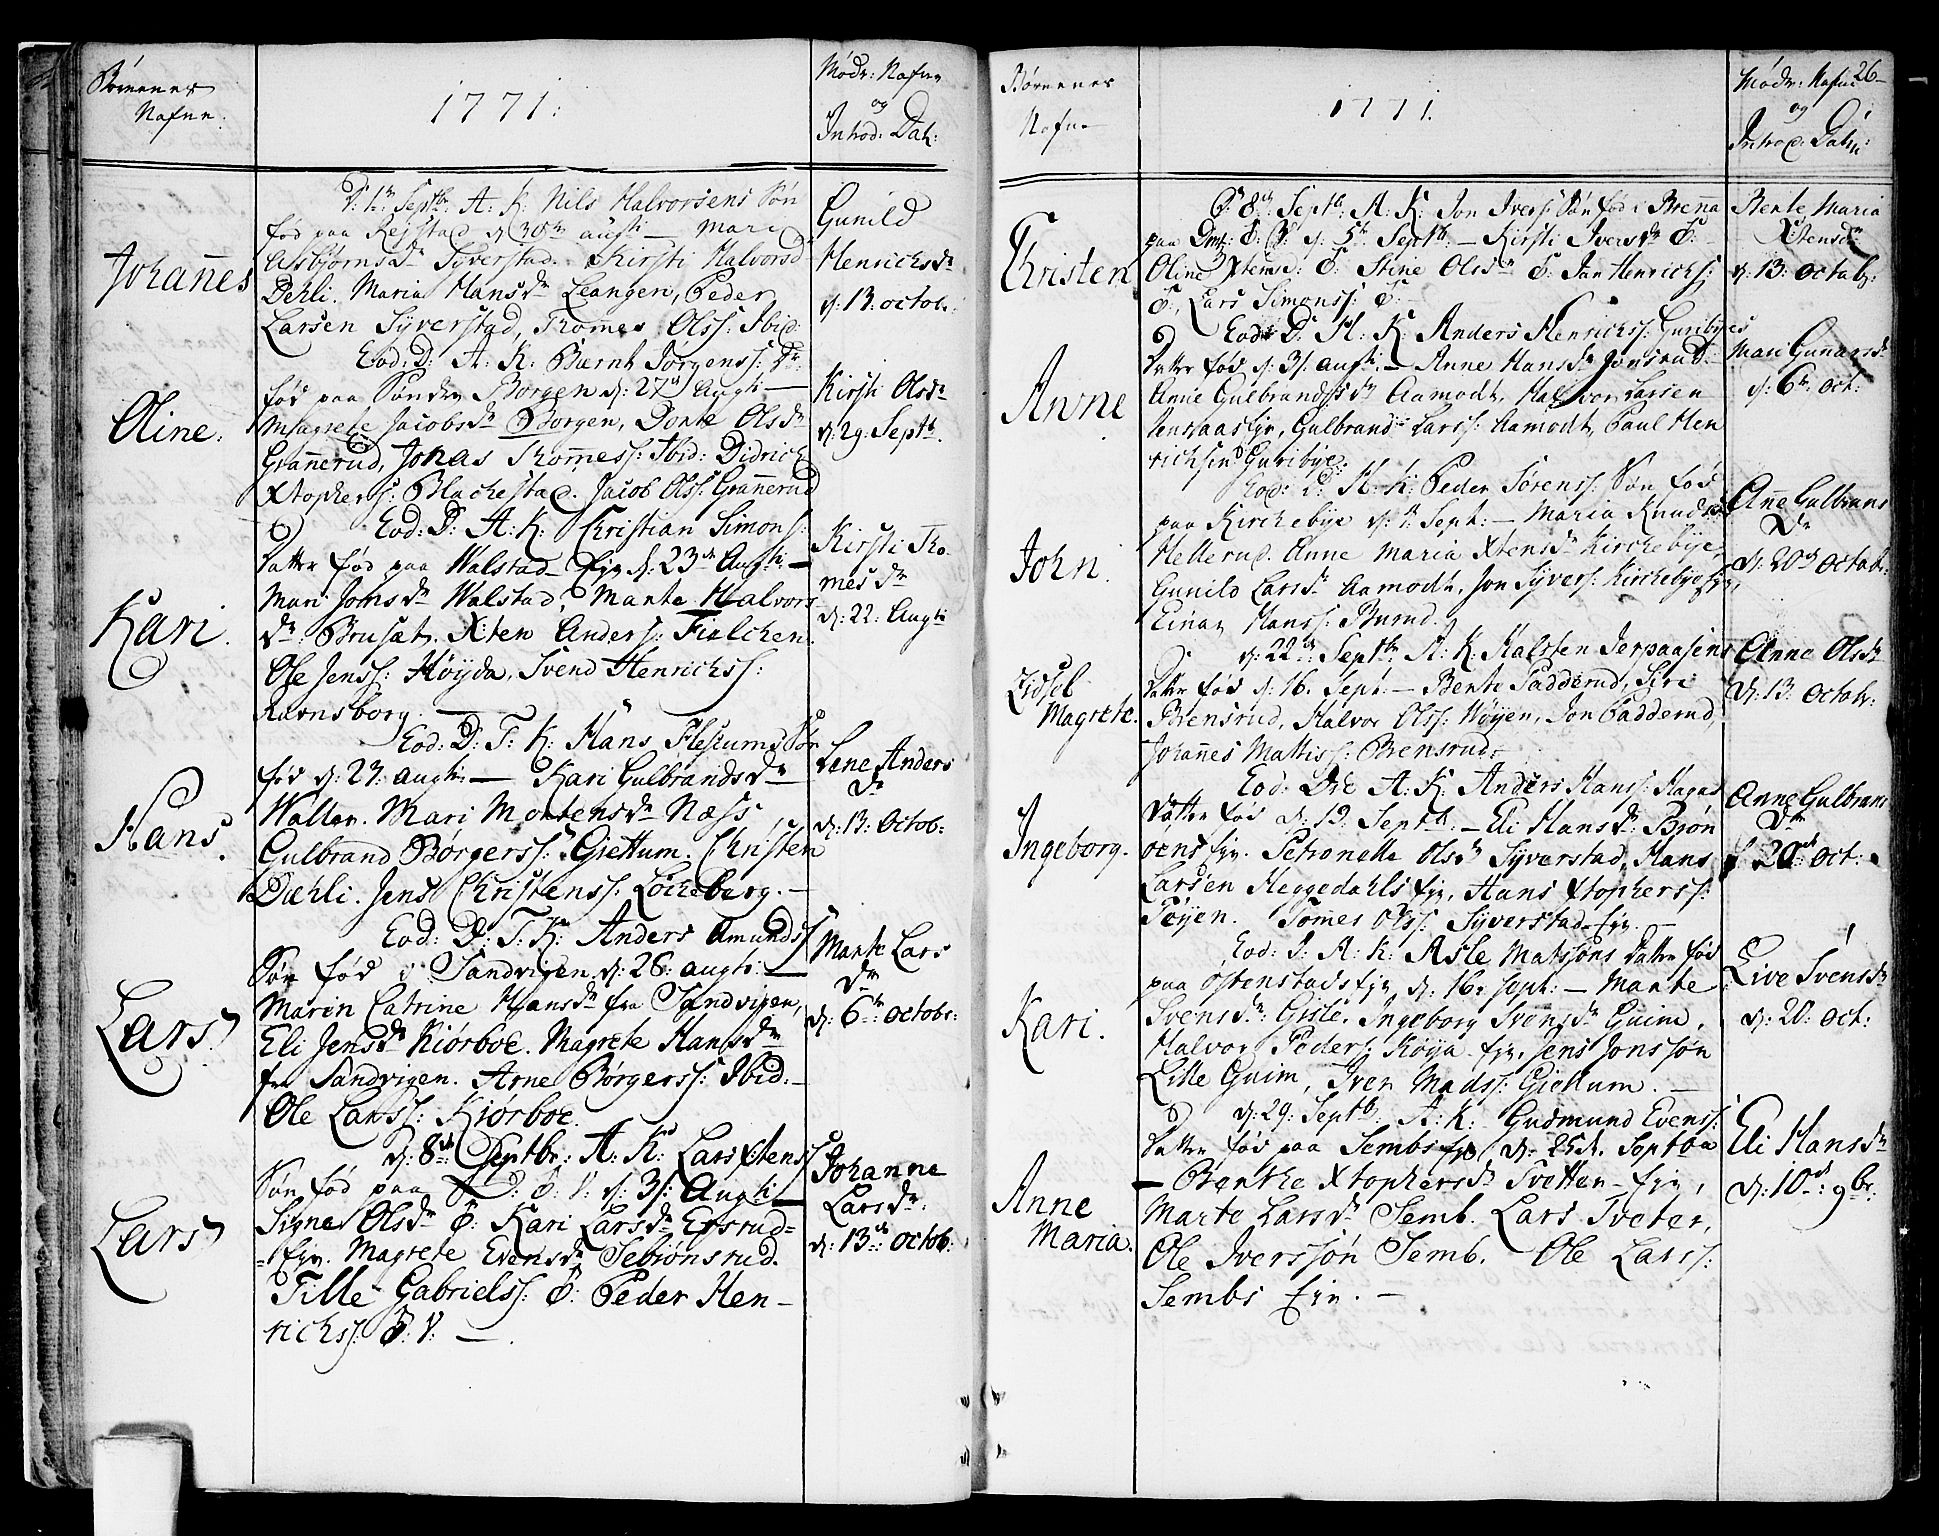 Børnenes
Nafne.
1771:
Mødr: Nafne
og
Introd: Dat:
Johannes
D: 1ste Septbr A: K: Nils Halvorsens Søn
fød paa Reistad d: 30te augti — Mari
Asbjørnsdr Syverstad. Kirsti Halvorsd
Dehli. Maria Hansdr Leangen, Peder
Larsen Syverstad, Tromes Olss: Ibid:
Gunild
Henrichsdr
d: 13. octob:
Oline.
Eod: D: A: K: Bærnt Jørgenss: Dr
fød paa Søndre Borgen d: 27de Augti —
Magrete Jacobsdr Borgen, Dorte Olsdr
Grannerud, Jonas Thommess: Ibid: Didrich
Xtophers: Blachestad. Jacob Olss: Grannerud
Kirsti Olsdr
d: 29. Septb.
Kari.
Eod: D: A: K: Christian Simons:
Datter fød paa Walstad Eje d: 23de Augti —
Mari Jonsdr Walstad, Marte Halvors
dr Brusæt. Xten Anders: Fialchen
Ole Jenss: Høyda, Svend Henrichss:
Ravnsborg —
Kirsti Tho
mesdr
d: 22. Augti
Hans.
Eod: D: T: K: Hans Fleskums Søn
fød d: 27. augti — Kari Gulbrandsdr
Waller. Mari Mortensdr Næss
Gulbrand Børgerss: Giettum. Christen
Dæhli. Jens Christenss: Løcheberg. —
Lene Anders
Dr
d: 13: Octob:
Lars
Eod: D: T: K: Anders Amundss
Søn fød i Sandvigen d: 26: augti —
Maren Catrine Hansdr fra Sandvigen,
Eli Jensdr Kiørboe. Magrete Hansdr
fra Sandvigen. Arne Børgerss: Ibid. —
Ole Larss: Kiørboe.
Marte Lars
dr
d: 6te octobr:
Lars
d: 8de Septbr: A: K: Lars Xtens
Søn fød paa D: B: V: d: 31: Augti —
Signe Olsdr B: Kari Larsdr Ersrud=
=Eje. Magrete Evensdr Sebiønsrud.
Tille Gabrielss: B: Peder Hen—
richss: B: V: —
Johanne
Larsdr.
d: 13de octob:
Børnenes
Nafne
1771.
Mødr: Nafne 26
og
Introd: Datn:
Christen
D: 8de Septb: A: K: Jon Ivers: Søn fød i Brena
paa Dmt: B: V: d: 5te Septb — Kirsti Iversdr B:
Oline Xtens: B: Stine Olsdr B: Jan Henrichs:
B:, Lars Simonss: B: —
Bente Maria
Xtensdr
d: 13: octob:
Anne
Eod: D: A: K: Anders Henrichs: Guribyes
Datter fød d: 31 augti. — Anne Hansdr Jonsrud.
Anne Gulbrandsdr Aamodt, Halvor Larsen
Eje, Gulbrand Larss: Aamodt, Paul Hen
richsen Guribye.
Mari Gunarsdr
d: 6te oct:
John.
Eod: D: A: K: Peder Sørens: Søn fød
paa Kirchebye d: 1. Sept: — Maria Knudsd
Hellerud. Anne Maria Xtensdr Kirchebye,
Gunild Larsdr Aamodt, Jon Syvers: Kirchebye Eje,
Einar Hanss: Burud.
Anne Gulbrans
Dr
d: 20de Octob:
Zidsel
Magrete.
d: 22de Septbr A: K: Halsten Jerpaasens
Datter fød d: 16. Sept. — Bente Padderud, Siri
Brensrud, Halvor Olss: Høyen, Jon Padderud,
Johannes Mattiss: Brensrud.
Anne Olsdr
d: 13. Octobr:
Ingeborg.
Eod: Die A: K: Anders Hanss: Hagas
Datter fød d: 19. Septb. — Eli Hansdr: Bjøn
Eje. Petronelle Olsdr Syverstad, Hans
Larsen Heggedahls Eje, Hans Xtopherss:
Tøyen. Tommes Olss: Syverstad Eje. —
Anne Gulbrans
Dr
d: 20de Oct:
Kari.
Eod: D: A: K: Asle Matsøns Datter fød
paa Ostenstads Eje d: 16. sept: — Marte
Svensdr: Gisle. Ingeborg Svensdr Guim.
Halvor Peders: Køya Eje, Jens Jonssøn
Lille Guim, Iver Madss: Giettum. —
Live Svensdr
d: 20. Oct:
Anne
Maria.
d: 29: Septb. A: K: Gudmund Evens:
Datter fød paa Sembs Eje d: 25de Septbr
— Benthe Xtophersdr Tvetten Eje,
Marte Larsdr Semb. Lars Tveter,
Ole Iverssøn Semb. Ole Larss:
Sembs Eje. —
Eli Hansdr
d: 10de 9br: